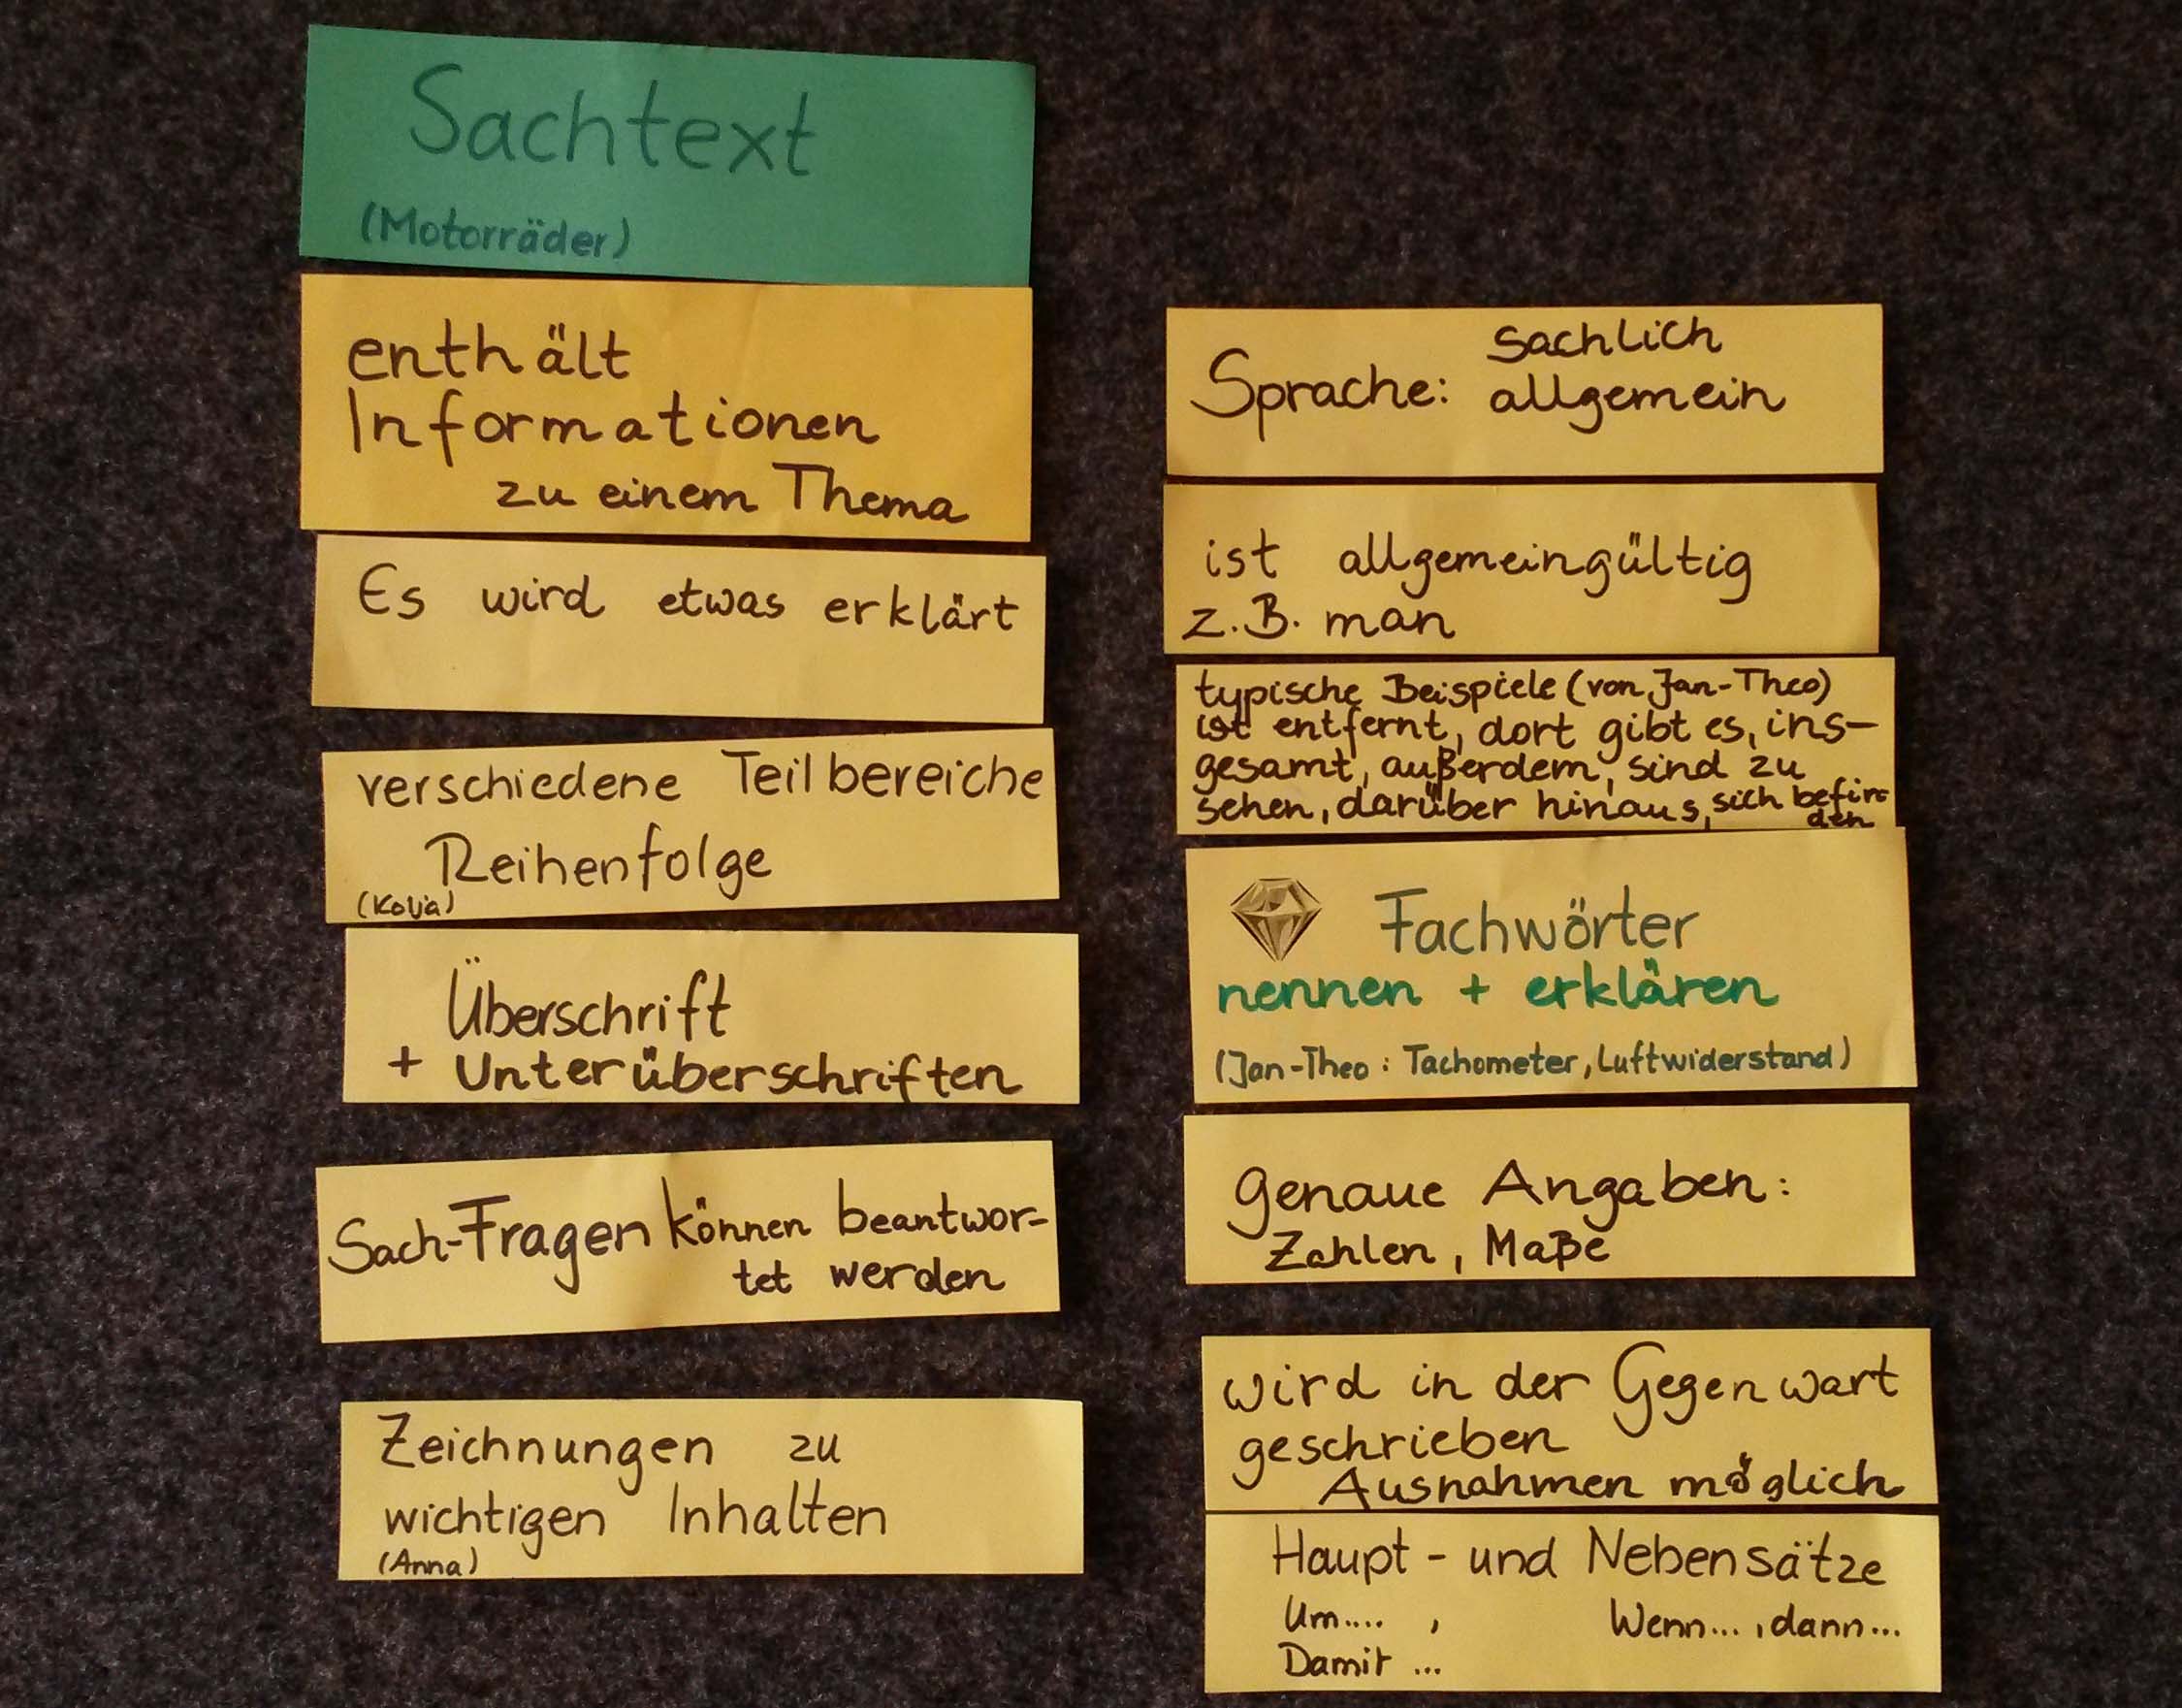 Sachtext
(Motorräder)
enthält
Informationen
zu einem Thema
Es wird etwas erklärt
verschiedene Teilbereiche
Reihenfolge
(Kolja)
Überschrift
+ Unterüberschriften
Sach-Fragen können beantwor-
tet werden
Zeichnungen zu
wichtigen Inhalten
(Anna)
sachlich
Sprache: allgemein
ist allgemeingültig
z.B. man
typische Beispiele (von Jan-Theo)
ist entfernt, dort gibt es, ins-
gesamt, außerdem, sind zu
sehen, darüber hinaus, sich befin-
den
Fachwörter
nennen + erklären
(Jan-Theo: Tachometer, Luftwiderstand)
genaue Angaben:
Zahlen, Maße
wird in der Gegenwart
geschrieben
Ausnahmen möglich
Haupt- und Nebensätze
Um...., Wenn..., dann...
Damit ...